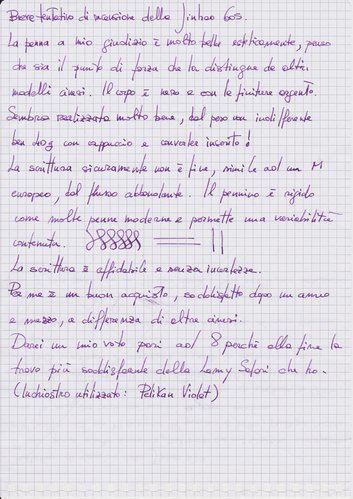 Breve tentativo di recensione della Jinhao 605.
La penna a mio giudizio è molto bella esteticamente, penso
che sia il punto di forza che la distingue da altri
modelli cinesi. Il corpo è nero e con le finiture argento.
Sembra realizzata molto bene, dal peso non indifferente
ben 40g con cappuccio e converter inserito!
La scrittura sicuramente non è fine, simile ad un M
europeo, dal flusso abbondante. Il pennino è rigido
come molte penne moderne e permette una variabilità
contenuta.
La scrittura è affidabile e senza incertezze.
Per me è un buon acquisto, soddisfatto dopo un anno
e mezzo, a differenza di altre cinesi.
Darei un mio voto pari ad 8 perché alla fine la
trovo più soddisfacente della Lamy Safari che ho.
(Inchiostro utilizzato: Pelikan Violet)